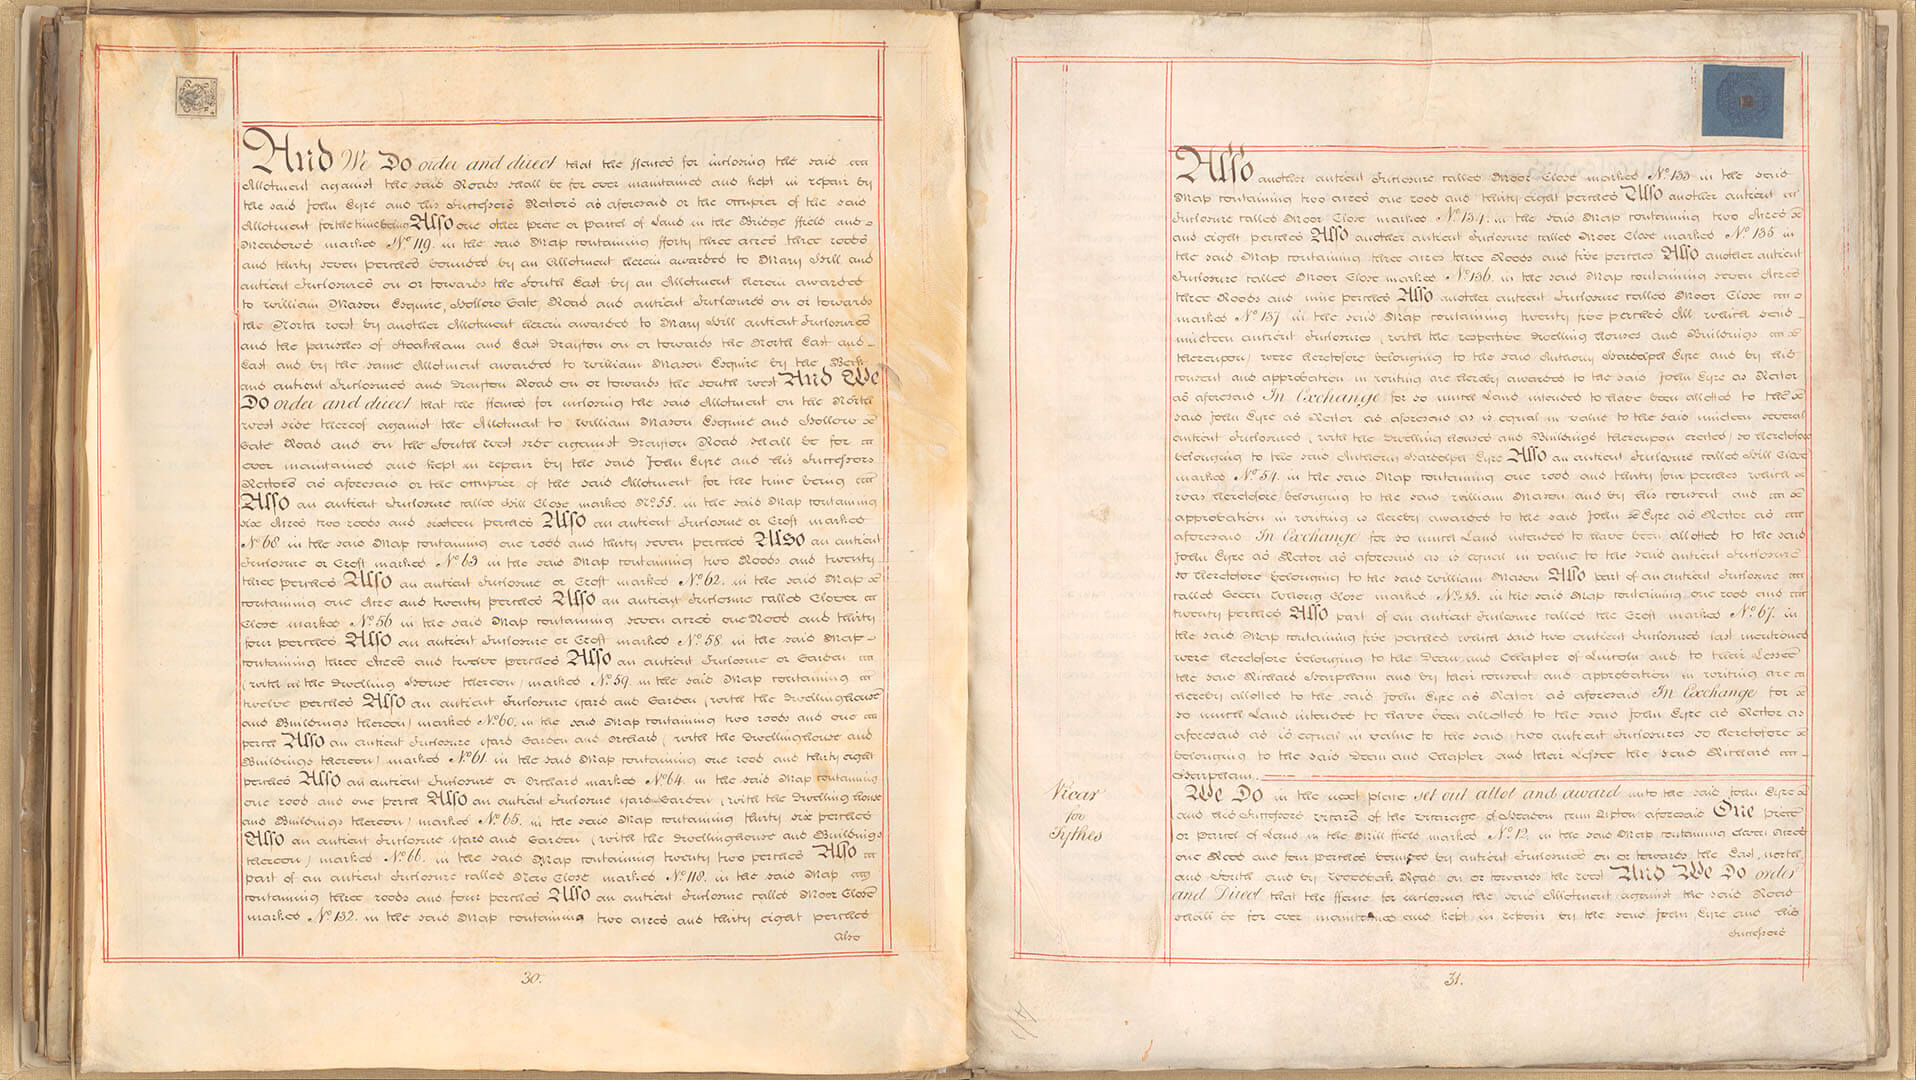 And We Do order and direct that the ffences for inclosing the said
Allotment against the said Roads shall be for ever maintained and kept in repair by
the said John Eyre and his Successors Rectors as aforesaid or the occupier of the said
Allotment for the time being Also one other piece or parcel of Land in the Bridge ffield and
Meadows marked No. 119. in the said Map containing fforty three acres three roods
and thirty seven perches bounded by an Allotment herein awarded to Mary Hill and
antient Inclosures on or towards the South East by an Allotment herein awarded
to William Mason Esquire, Hollow Gate Road and antient Inclosures on or towards
the North West by another Allotment herein awarded to Mary Hill antient Inclosures
and the parishes of Stokeham and East Drayton on or towards the North East and
East and by the same Allotment awarded to William Mason Esquire by the Beck
and antient Inclosures and Drayton Road on or towards the South West And We
Do order and direct that the ffences for inclosing the said Allotment on the North
West side thereof against the Allotment to William Mason Esquire and Hollow
Gate Road and on the South West side against Drayton Road shall be for
ever maintained and kept in repair by the said John Eyre and his Successors
Rectors as aforesaid or the occupier of the said Allotment for the time being
Also an antient Inclosure called Hill Close marked No. 55. in the said Map containing
six Acres two roods and sixteen perches Also an antient Inclosure or Croft marked
No. 68 in the said Map containing one rood and thirty seven perches Also an antient
Inclosure or Croft marked No. 63 in the said Map containing two Roods and twenty
three perches Also an antient Inclosure or Croft marked No. 62. in the said Map
containing one Acre and twenty perches Also an antient Inclosure called Clover
Close marked No. 56 in the said Map containing seven acres one Rood and thirty
four perches Also an antient Inclosure or Croft marked No. 58. in the said Map
containing three Acres and twelve perches Also an antient Inclosure or Garden
(with the Dwelling House thereon) marked No. 59. in the said Map containing
twelve perches Also an antient Inclosure yard and Garden (with the Dwellinghouse
and Buildings thereon) marked No. 60. in the said Map containing two roods and one
perch Also an antient Inclosure yard Garden and Orchard (with the Dwellinghouse and
Buildings thereon) marked No. 61. in the said Map containing one rood and thirty eight
perches Also an antient Inclosure or Orchard marked No. 64. in the said Map containing
one rood and one perch Also an antient Inclosure yard Garden (with the Dwelling house
and Buildings thereon) marked No. 65. in the said Map containing thirty six perches
Also an antient Inclosure yard and Garden (with the Dwellinghouse and Buildings
thereon) marked No. 66. in the said Map containing twenty two perches Also
part of an antient Inclosure called Close marked No. 118. in the said Map
containing three roods and four perches Also an antient Inclosure called Moor Close
marked No. 132. in the said Map containing two acres and thirty eight perches
Also
30.
Also another antient Inclosure called Moor Close marked No. 133 in the said
Map containing two acres one rood and thirty eight perches Also another antient
Inclosure called Moor Close marked No. 134. in the said Map containing two Acres
and eight perches Also another antient Inclosure called Moor Close marked No. 135 in
the said Map containing three acres three Roods and five perches Also another antient
Inclosure called Moor Close marked No. 136. in the said Map containing seven Acres
three Roods and nine perches Also another antient Inclosure called Moor Close
marked No. 137 in the said Map containing twenty five perches All which said
nineteen antient Inclosures (with the respective dwelling houses and Buildings
thereupon) were heretofore belonging to the said Anthony Hardolph Eyre and by his
consent and approbation in writing are hereby awarded to the said John Eyre as Rector
as aforesaid In Exchange for so much Land intended to have been allotted to the
said John Eyre as Rector as aforesaid as is equal in value to the said nineteen several
antient Inclosures (with the Dwelling houses and Buildings thereupon erected) so heretofore
belonging to the said Anthony Hardolph Eyre Also an antient Inclosure called Hill Close
marked No. 54. in the said Map containing one rood and thirty four perches which
was heretofore belonging to the said William Mason and by his consent and
approbation in writing is hereby awarded to the said John Eyre as Rector as
aforesaid In Exchange for so much Land intended to have been allotted to the said
John Eyre as Rector as aforesaid as is equal in value to the said antient Inclosure
so heretofore belonging to the said William Mason Also part of an antient Inclosure
called Close marked No. 33. in the said Map containing one rood and
twenty perches Also part of an antient Inclosure called the Croft marked No. 67. in
the said Map containing five perches which said two antient Inclosures last mentioned
were heretofore belonging to the Dean and Chapter of Lincoln and to their Lessee
the said Richard Harpham and by their consent and approbation in writing are
hereby allotted to the said John Eyre as Rector as aforesaid In Exchange for
so much Land intended to have been allotted to the said John Eyre as Rector as
aforesaid as is equal in value to the said two antient Inclosures so heretofore
belonging to the said Dean and Chapter and their Lessee the said Richard
Harpham.
Vicar
for
Tythes
We Do in the next place set out allot and award unto the said John Eyre
and his Successors Vicars of the Vicarage of Headon cum Upton aforesaid One piece
or parcel of Land in the Mill ffield marked No. 12. in the said Map containing eleven Acres
one Rood and four perches bounded by antient Inclosures on or towards the East, North
and South and by Road on or towards the West And We Do order
and Direct that the ffence for inclosing the said Allotment against the said Road
shall be for ever maintained and kept in repair by the said John Eyre and his
Successors
31.